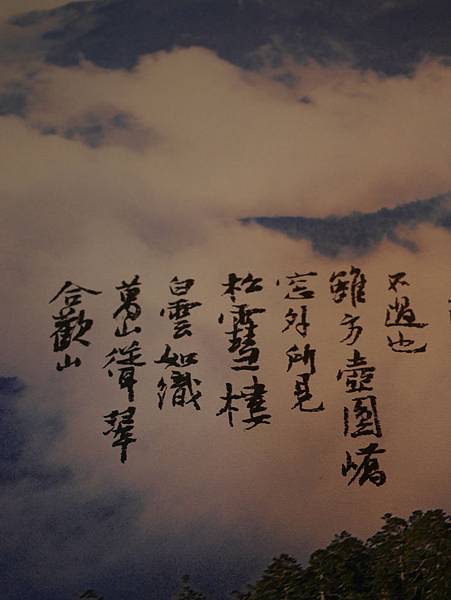 合歡山
萬山聳翠
白雲如織
松䨮樓
窓外所見
雖方壺圓嶠
不過也